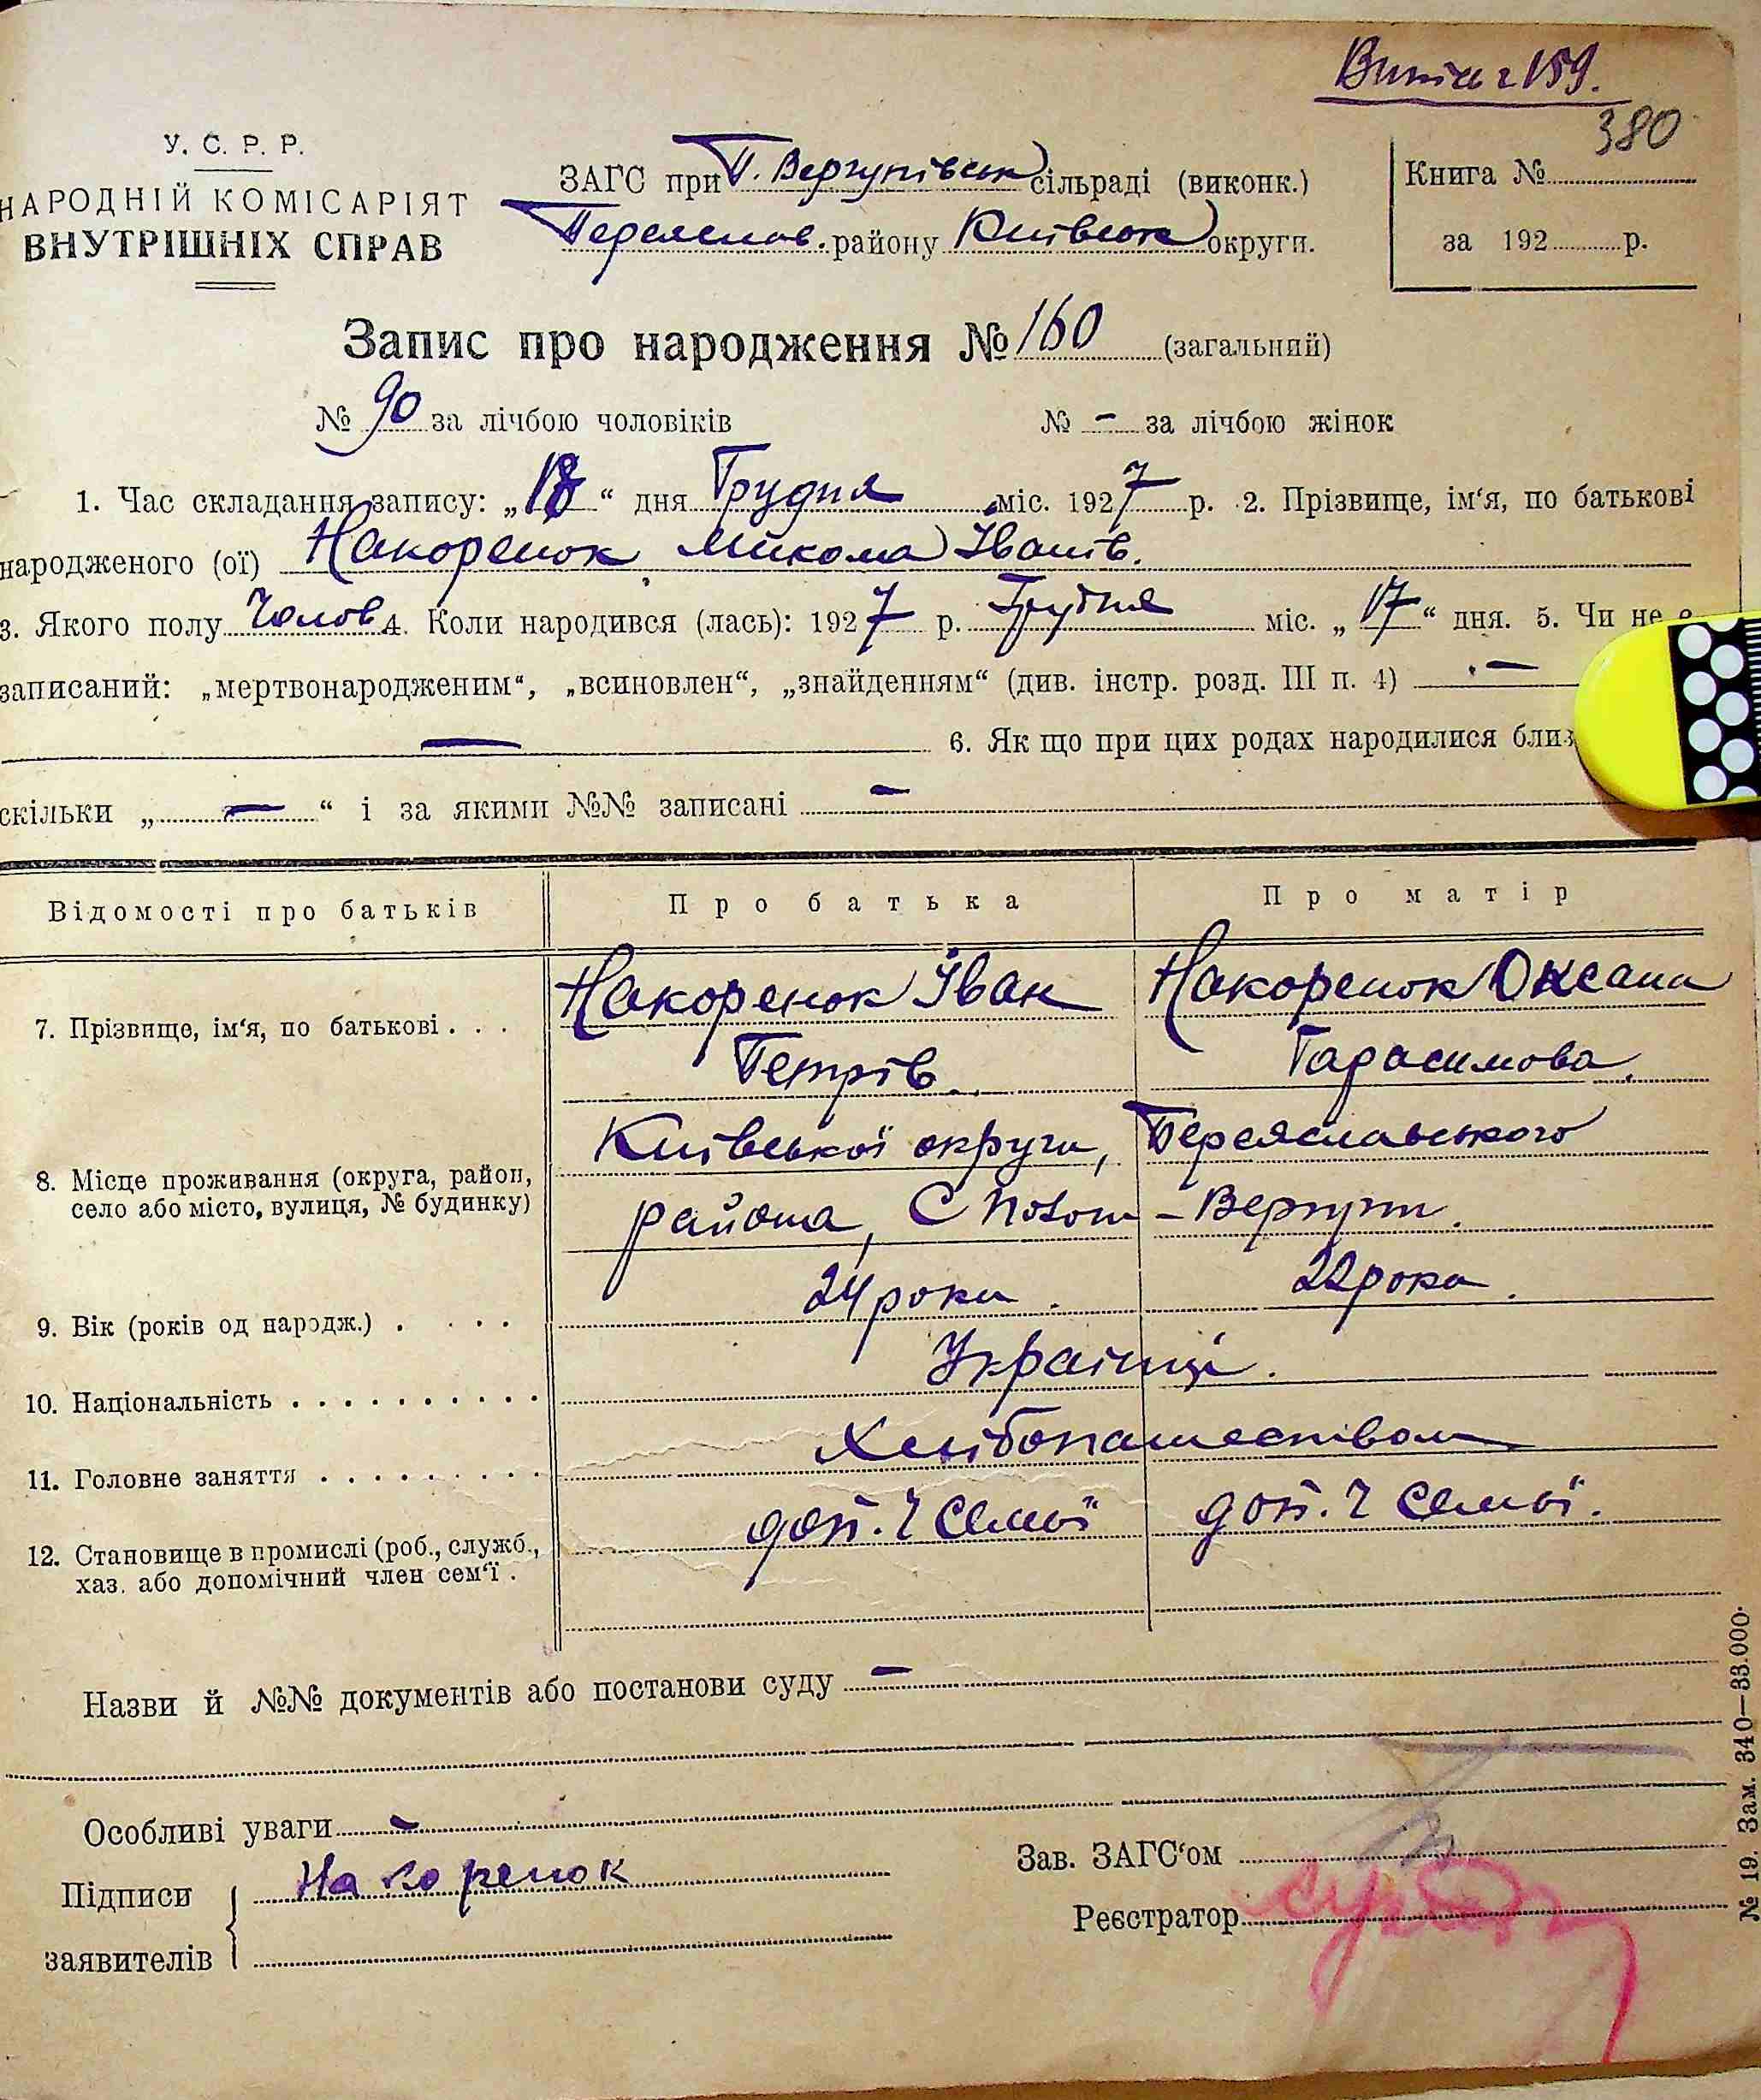 159.
380
У. С. Р. Р.
НАРОДНІЙ КОМІСАРІЯТ
ВНУТРІШНІХ СПРАВ
ЗАГС при П. Вергунівськ сільраді (виконк.)
Переяслав. району Київськ округи.
Книга №
за 192 р.
Запис про народження № 160 (загальний)
№ 90 за лічбою чоловіків № - за лічбою жінок
1. Час складання запису: „18“ дня Грудня міс. 1927 р. 2. Прізвище, ім‘я, по батькові
народженого (ої) Накоренок Микола Іванів.
3. Якого полу Чолов 4. Коли народився (лась): 1927 р. Грудня міс. „17“ дня. 5. Чи не є
записаний: „мертвонародженим“, „всиновлен“, „знайденням“ (див. інстр. розд. III п. 4) —
— 6. Як що при цих родах народилися близ
скільки „—“ і за якими №№ записані —
Відомості про батьків Про батька Про матір
7. Прізвище, ім‘я, по батькові . . . Накоренок Іван Накоренок Оксана
Петрів. Тарасимова.
8. Місце проживання (округа, район, село або місто, вулиця, № будинку) Київської округи, Переяславського
района, С Полом - Вергуни.
9. Вік (років од народж.) . . . . 24 роки. 22 рока.
10. Національність . . . . . . . . . . Україтці.
11. Головне заняття . . . . . . . . . Хлібопашеством
12. Становище в промислі (роб., служб., хаз. або допомічний член сем‘ї . доп. ч семьї доп. ч семьї.
Назви й №№ документів або постанови суду —
Особливі уваги -
Підписи заявителів Накоренок
Зав. ЗАГС‘ом
Реєстратор
№ 19. Зам. 340—33.000.